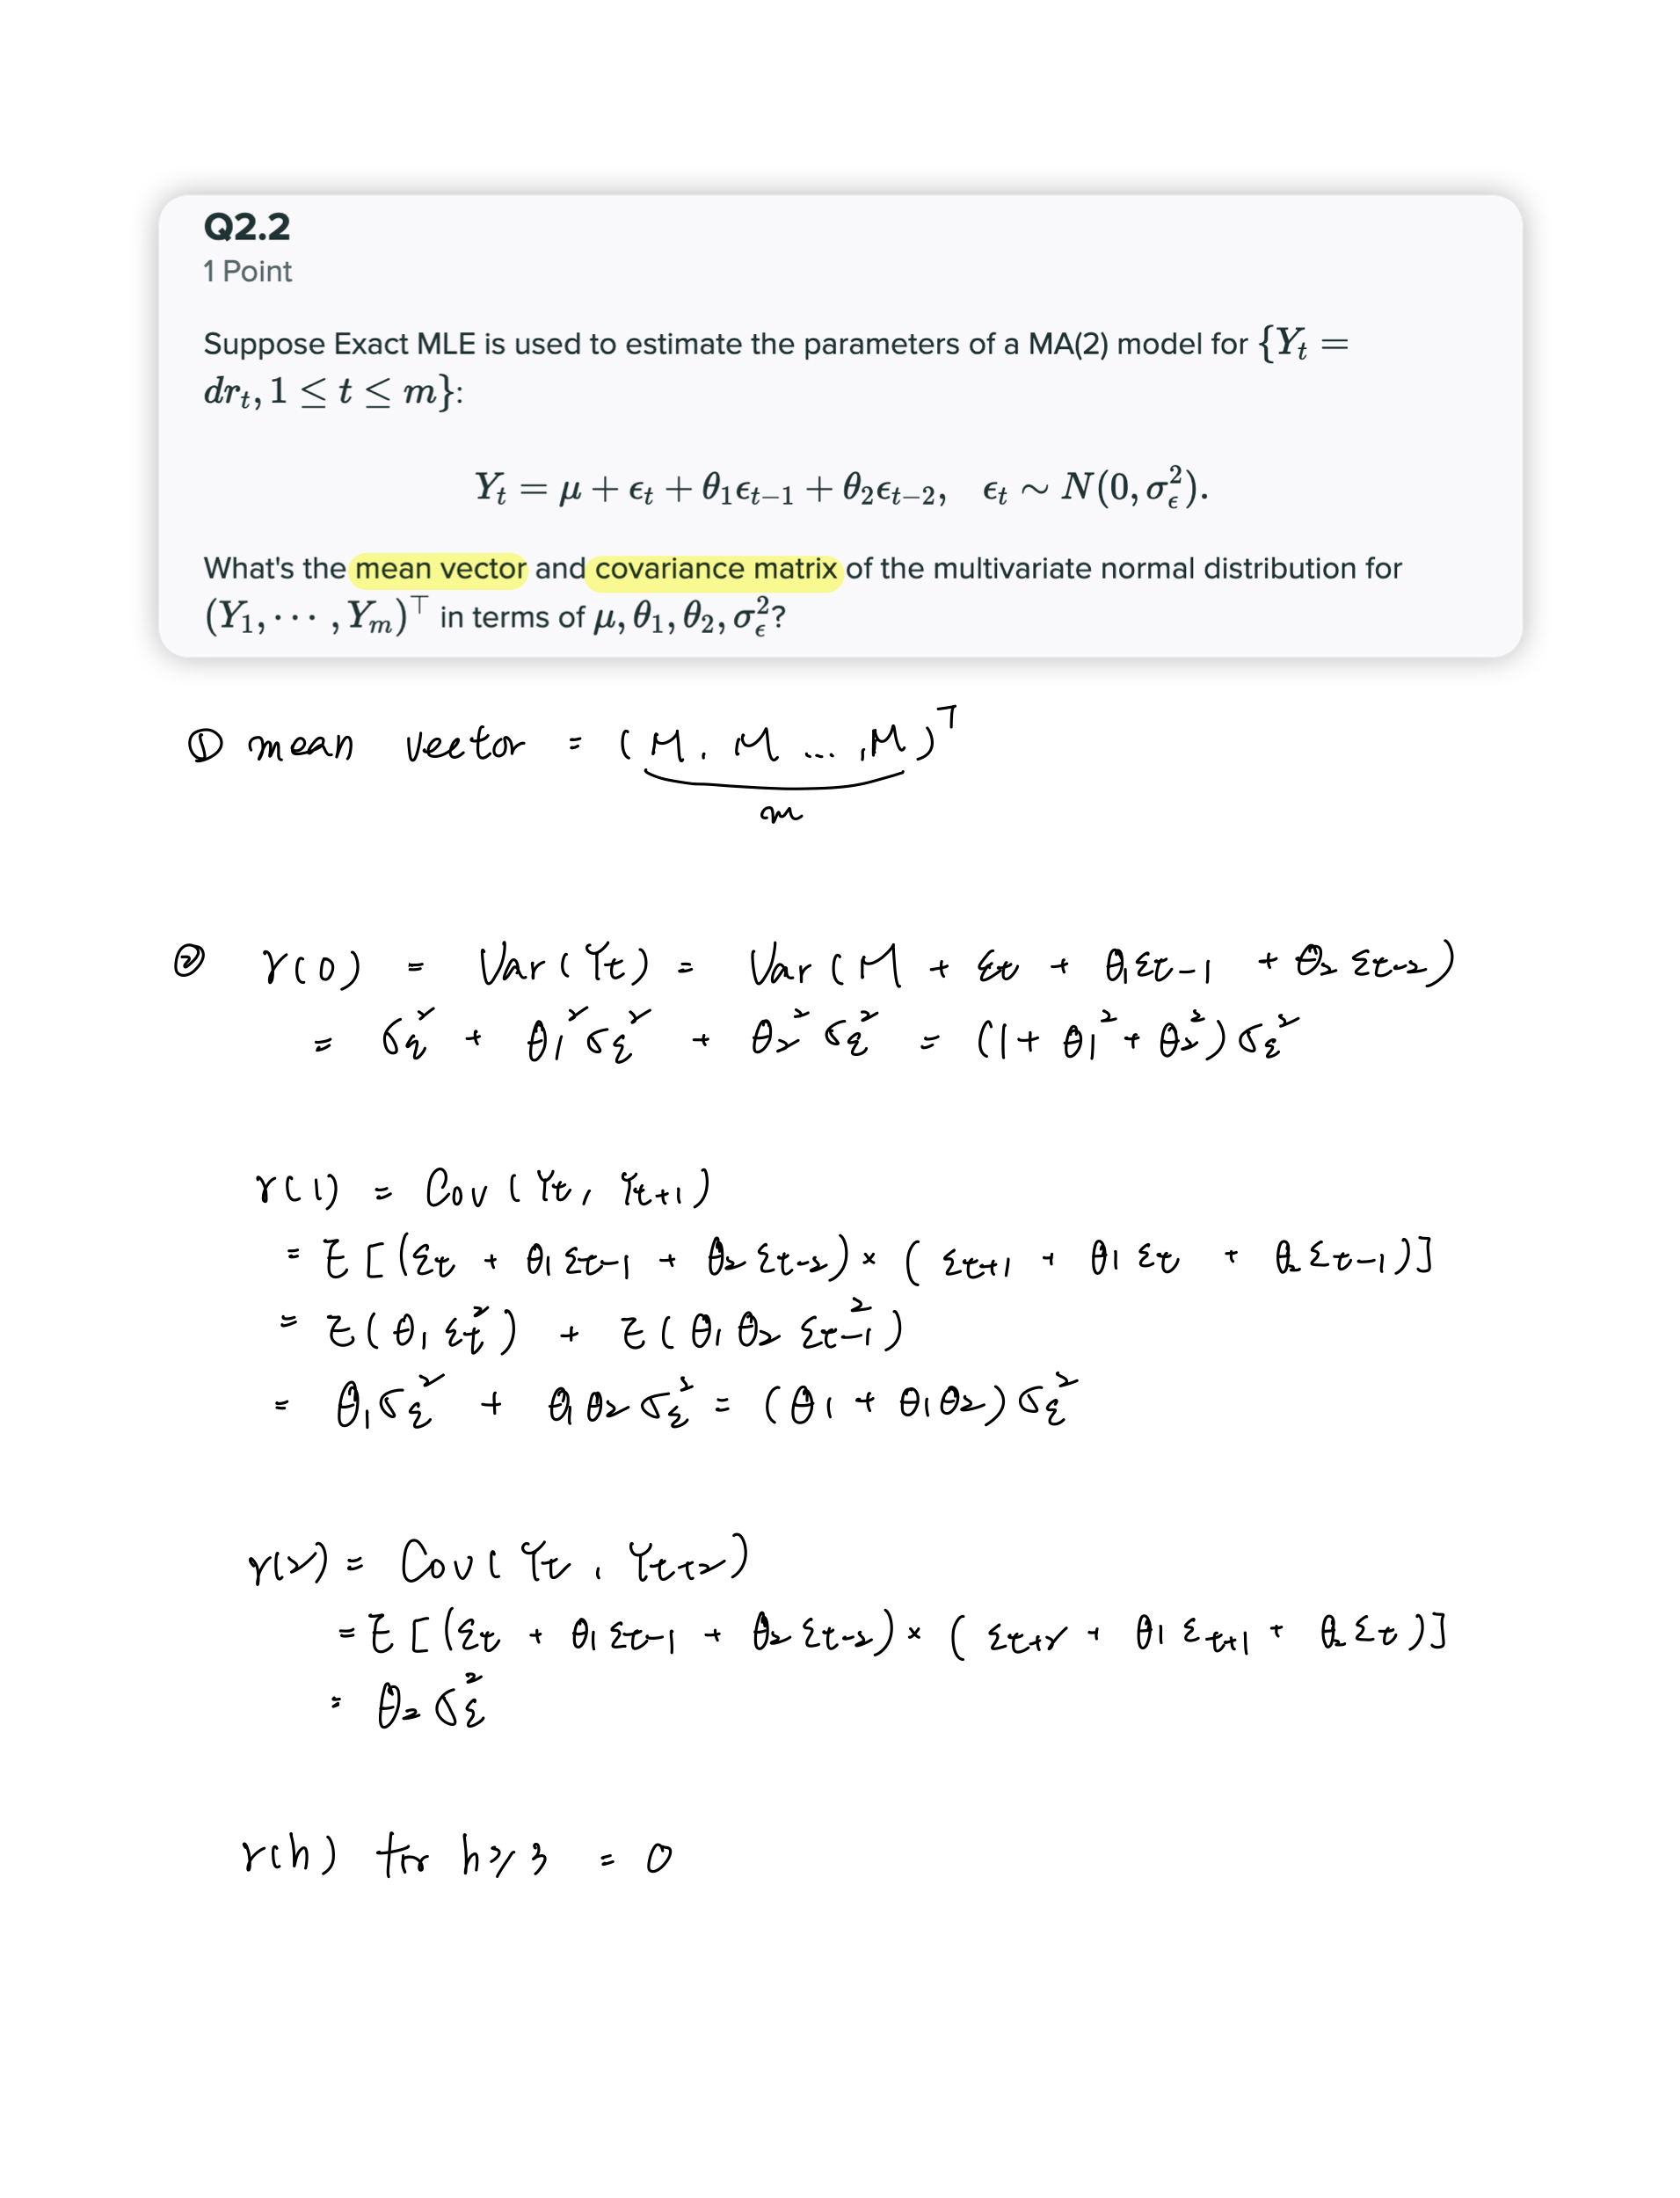 Q2.2
1 Point
Suppose Exact MLE is used to estimate the parameters of a MA(2) model for {Y_t =
dr_t, 1 ≤ t ≤ m}:
Y_t = μ + ϵ_t + θ_1ϵ_{t−1} + θ_2ϵ_{t−2}, ϵ_t ∼ N(0, σ_ϵ^2).
What's the mean vector and covariance matrix of the multivariate normal distribution for
(Y_1, ⋯ , Y_m)^⊤ in terms of μ, θ_1, θ_2, σ_ϵ^2?
① mean vector = (μ, μ ..., μ)^T
m
② γ(0) = Var(Y_t) = Var(μ + ε_t + θ_1ε_{t-1} + θ_2ε_{t-2})
= σ_ε^2 + θ_1^2σ_ε^2 + θ_2^2σ_ε^2 = (1 + θ_1^2 + θ_2^2)σ_ε^2
γ(1) = Cov(Y_t, Y_{t+1})
= E[(ε_t + θ_1ε_{t-1} + θ_2ε_{t-2}) × (ε_{t+1} + θ_1ε_t + θ_2ε_{t-1})]
= E(θ_1ε_t^2) + E(θ_1θ_2ε_{t-1}^2)
= θ_1σ_ε^2 + θ_1θ_2σ_ε^2 = (θ_1 + θ_1θ_2)σ_ε^2
γ(2) = Cov(Y_t, Y_{t+2})
= E[(ε_t + θ_1ε_{t-1} + θ_2ε_{t-2}) × (ε_{t+2} + θ_1ε_{t+1} + θ_2ε_t)]
= θ_2σ_ε^2
γ(h) for h ≥ 3 = 0